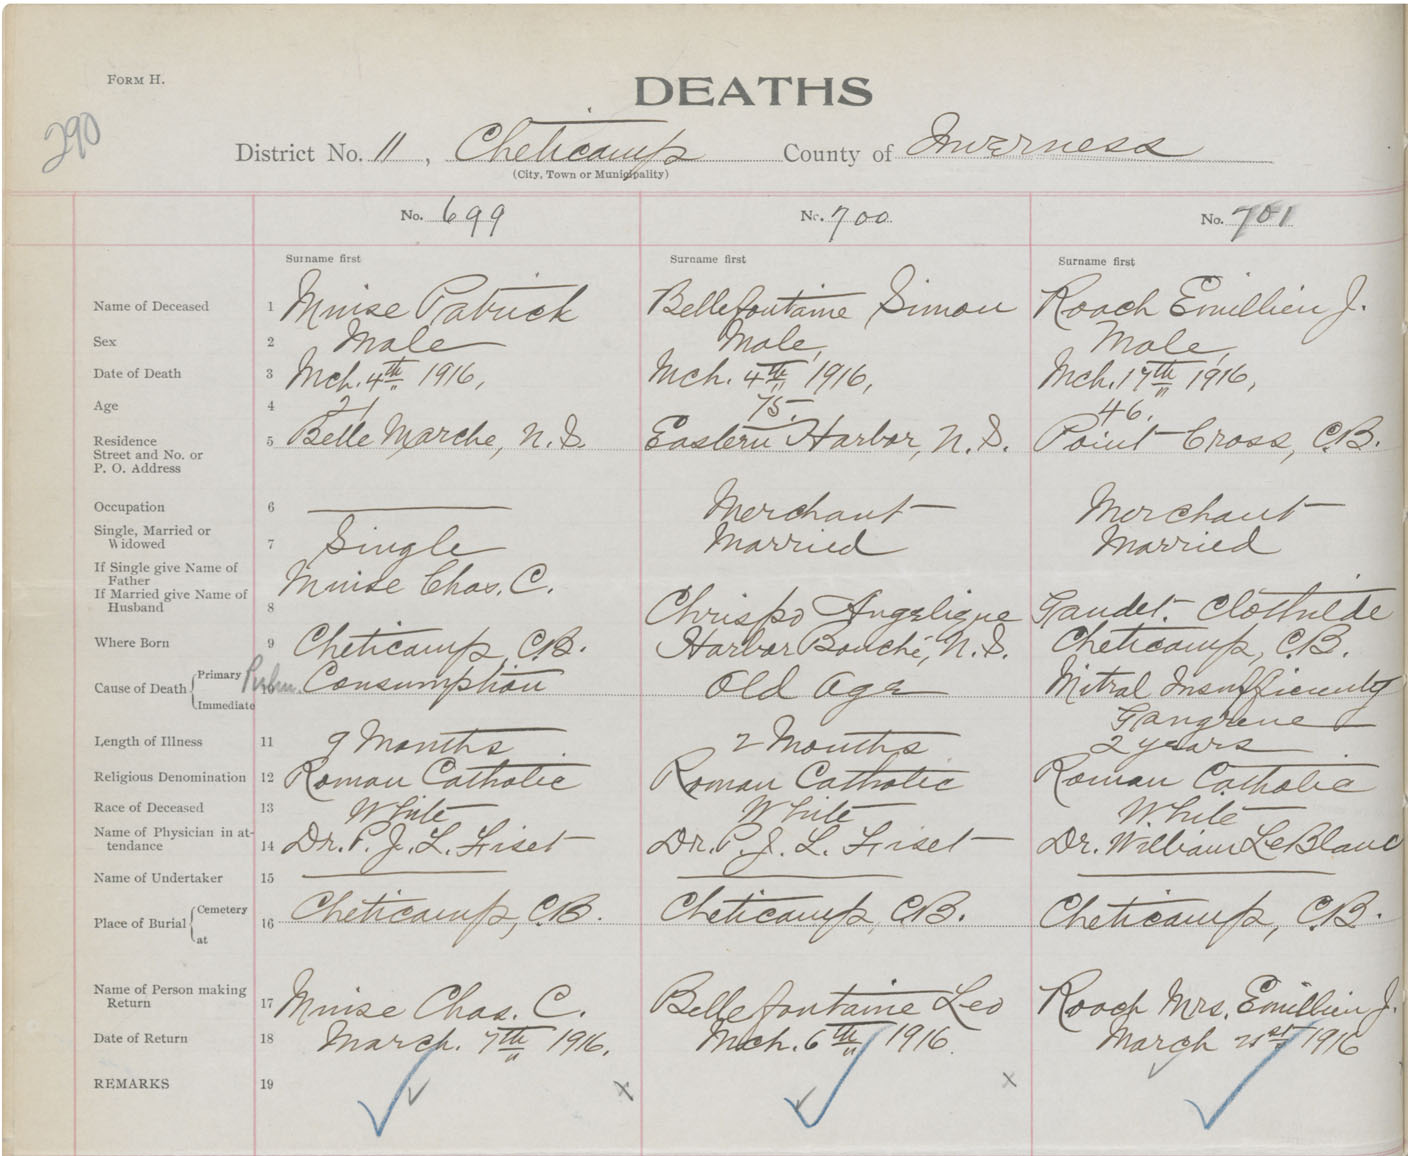 FORM H.
DEATHS
290
District No. 11, Cheticamp County of Inverness
(City, Town or Municipality)
No. 699 No. 700 No. 701
Surname first Surname first Surname first
Name of Deceased 1 Muise Patrick Bellefontaine Simon Roach Emillien J.
Sex 2 Male Male, Male,
Date of Death 3 Mch. 4th 1916, Mch. 4th 1916, Mch. 17th 1916,
Age 4 21 75. 46.
Residence
Street and No. or 5 Belle Marche, N.S. Eastern Harbor, N.S. Point Cross, C.B.
P. O. Address
Occupation 6 Merchant Merchant
Single, Married or
Widowed 7 Single Married Married
If Single give Name of
Father Muise Chas. C.
If Married give Name of
Husband 8 Chrispo Angelique Gaudet. Clothilde
Where Born 9 Cheticamp, C.B. Harbor Bouché, N.S. Cheticamp, C.B.
Cause of Death Primary 10 Pulm. Consumption Old Age Mitral Insufficiently
Immediate Gangrene
Length of Illness 11 9 Months 2 Months 2 years
Religious Denomination 12 Roman Catholic Roman Catholic Roman Catholic
Race of Deceased 13 White White White
Name of Physician in at-
tendance 14 Dr. P. J. L. Fiset Dr. P. J. L. Fiset Dr. William LeBlanc
Name of Undertaker 15
Place of Burial Cemetery at 16 Cheticamp, C.B. Cheticamp, C.B. Cheticamp, C.B.
Name of Person making
Return 17 Muise Chas. C. Bellefontaine Leo Roach Mrs. Emillien J.
Date of Return 18 March. 7th 1916. Mch. 6th 1916. March 21st 1916
REMARKS 19